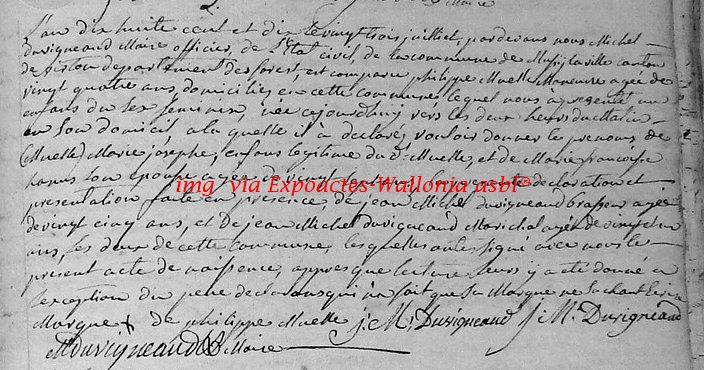 Maire
L'an dix huite cent et dix le vingt trois juilliet, par devans nous Michel
Duvigneaud Maire officier, de l'Etat civil, de la commune de Musy la ville canton
de virton departement des forest, est comparu philippe Muelle Manouvre agée de
vingt quatre ans, domiciliés en cette commune lequel nous à presenté un
enfans du sex feminin, née cejourdhuy vers les deux heurs du Matin
en son domicil a la quelle il à declarés vouloir donner le prenoms de
(Muelle) Marie josephe, enfans legitime du dt Muelle, et de Marie francoise
son epouse agée de vingt declaration et
img via Expoactes-Wallonia asbl©
presentation faite en presence, de jean Michel duvigneaud brasseur agée
de vingt cinq ans, et de jean Michel Duvigneaud Marichal agée de vingt et un
ans, les deux de cette commune, lesquelles ont signé avec nous le
present acte de naissence, appres que lecture leurs y a été donné a
lexception du pere declarans qui n'a fait que sa Marque ne sachant
Marque + de philippe Muelle J: M: Duvigneaud J: M: Duvigneaud
M Duvigneaud Maire